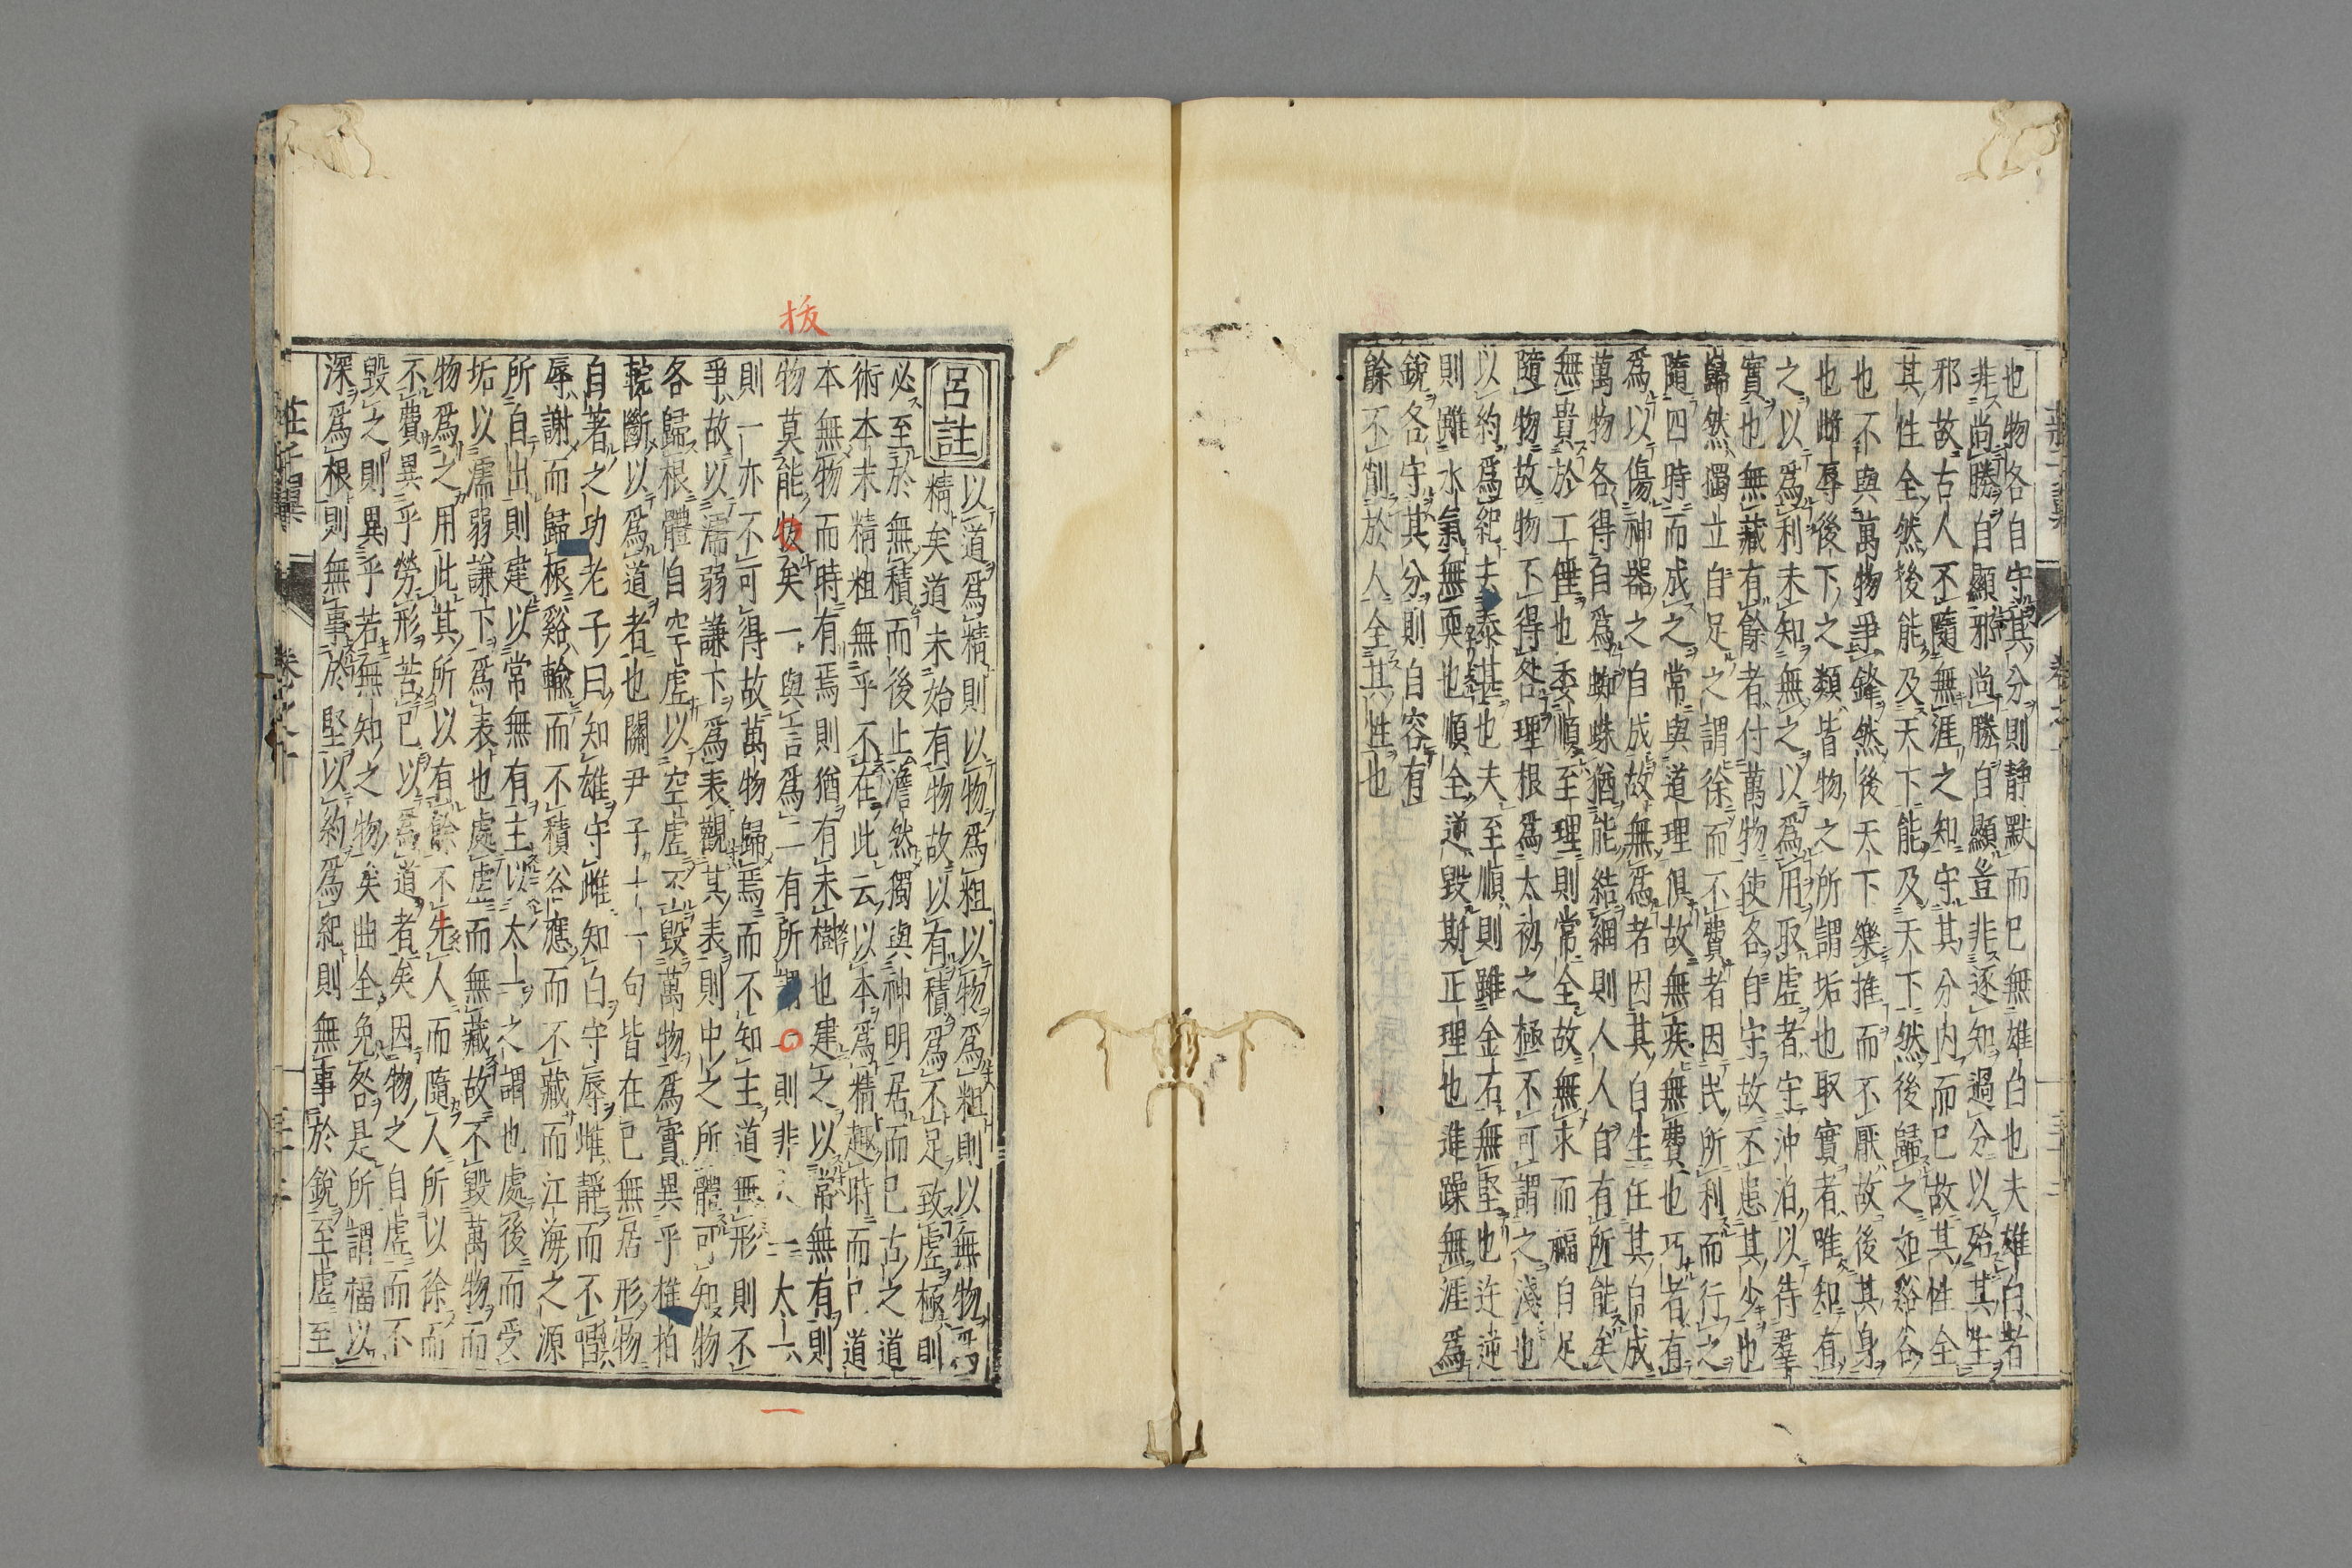 也物各自守其分則靜默而已無雄白也夫雄白者
非尚勝自顯邪尚勝自顯豈非逐知過分以殆其生
邪故古人不隨無涯之知守其分內而已故其性全
其性全然後能及天下能及天下然後歸之如谿谷
也不與萬物爭鋒然後天下樂推而不厭故後其身
也雌辱後下之類皆物之所謂垢也取實者唯知有
之以爲利未知無之以爲用取虛者守沖泊以待羣
實也無藏有餘者付萬物使各自守故不患其少也
歸然獨立自足之謂徐而不費者因民所利而行之
隨四時而成之常與道理俱故無疾無費也巧者有
爲以傷神器之自成故無爲者因其自生任其自成
萬物各得自爲蜘蛛猶能結網則人人自有所能矣
無貴於工倕也委順至理則常全故無求而福自足
隨物故物不得各理根爲太初之極不可謂之淺也
以約爲紀去泰甚也夫至順則雖金石無堅也迕逆
則雖水氣無耎也順全道毀斯正理也進躁無涯爲
銳各守其分則自容有
餘不削於人全其性也
呂註 以道爲精則以物爲粗以物爲粗則以無物爲
精矣道未始有物故以有積爲不足致虛極則
必至於無積而後止澹然獨與神明居而已古之道
術本末精粗無乎不在此云以本爲精趣時而已道
本無物而時有焉則猶有未樹也建之以常無有則
物莫能拔矣一與言爲二有所謂一則非太一
則一亦不可得故萬物歸焉而不知主道無形則不
爭故以濡弱謙下爲表觀其表則中之所體可知物
各歸根體自空虛以空虛不毀萬物爲實異乎椎拍
輐斷以爲道者也關尹子十一句皆在已無居形物
自著之功老子曰知雄守雌知白守辱雌靜而不唱
辱謝而歸根谿輸而不積谷應而不藏而江海之源
所自出則建以常無有主以太一之謂也處後而受
垢以濡弱謙下爲表也處虛而無藏故不毀萬物而
物爲之用此其所以有餘不先人而隨人所以徐而
不費異乎勞形苦已以爲道者矣因物之自虛而不
毀之則異乎若無知之物矣曲全免咎是所謂福以
深爲根則無事於堅以約爲紀則無事於銳至虛至
莊子翼
卷之十
三十二
拔
一